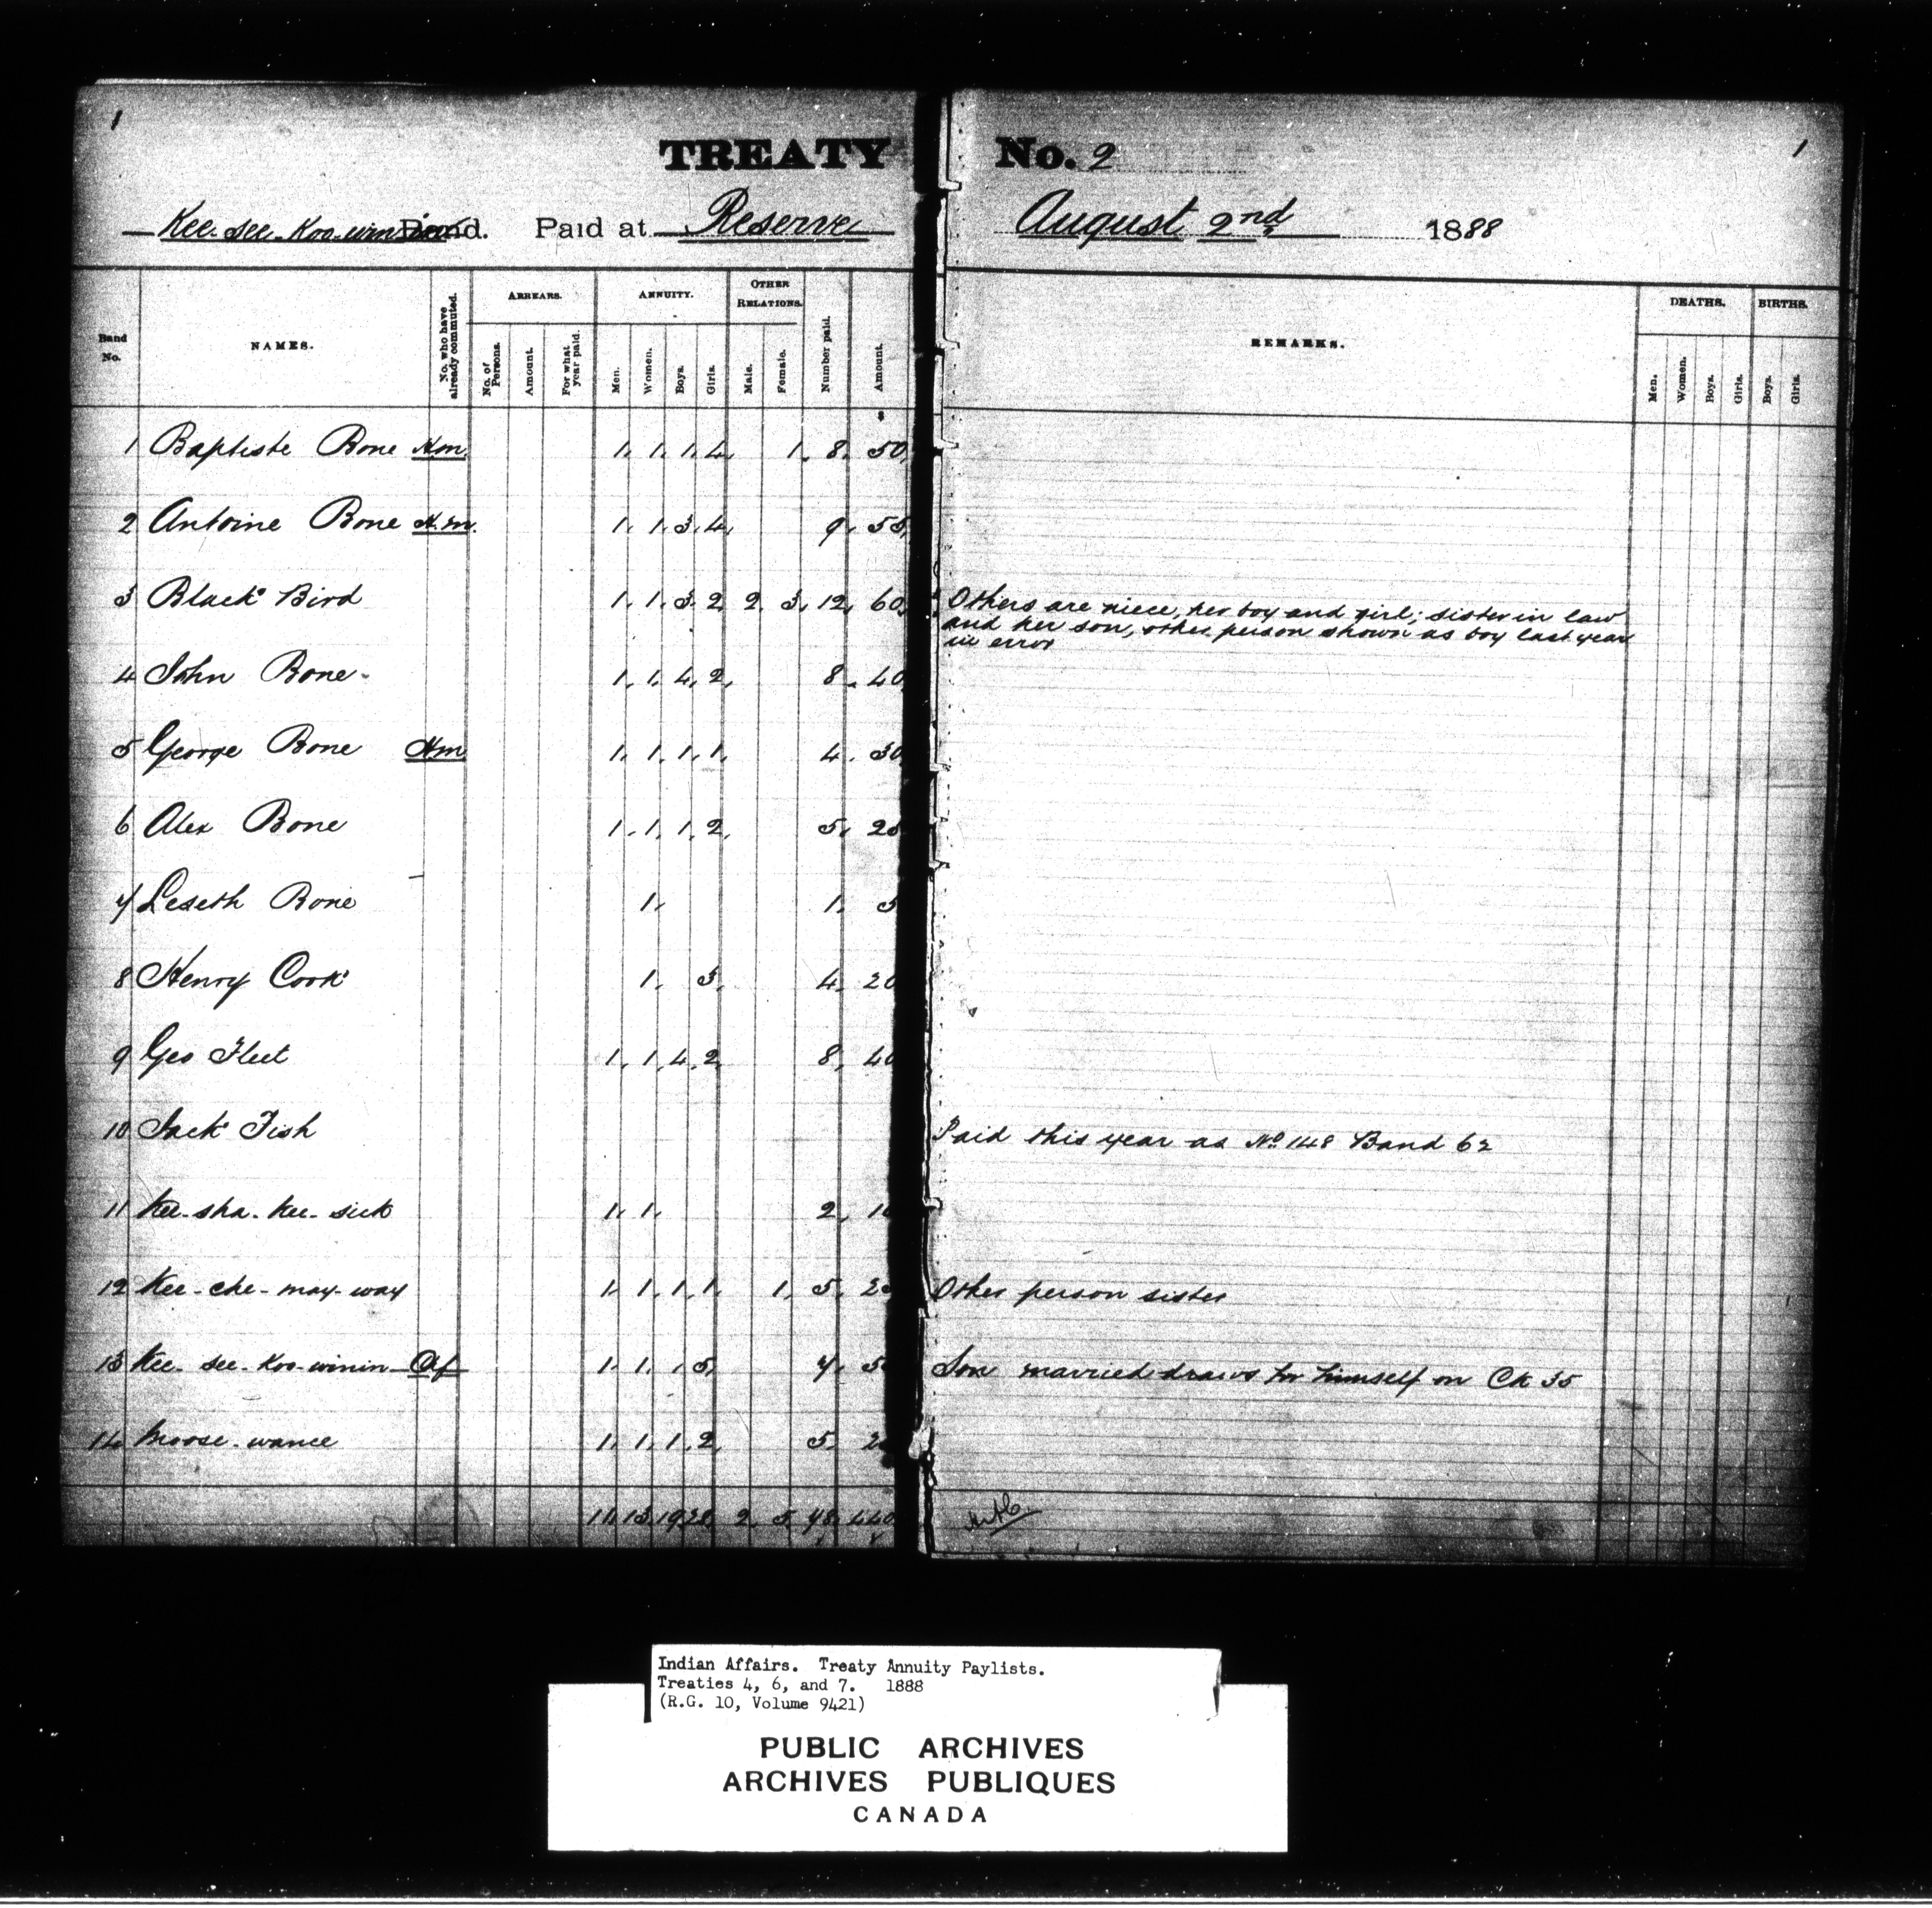 1 1
TREATY No. 2
Kee-see-Koo-winin Band. Paid at Reserve August 2nd 1888
Band No. NAMES. No. who have already commuted. ARREARS. ANNUITY. OTHER RELATIONS. Number paid. Amount. REMARKS. DEATHS. BIRTHS.
No. of Persons. Amount. For what year paid. Men. Women. Boys. Girls. Male. Female. Men. Women. Boys. Girls. Boys. Girls.
1 Baptiste Bone Hm. 1. 1. 1. 4. 1. 8. 50.
2 Antoine Bone H.m. 1. 1. 3. 4. 9. 55.
3 Black Bird 1. 1. 3. 2. 2. 3. 12. 60. Others are niece, her boy and girl; sister in law
and her son, other person shown as boy last year
in error
4 John Bone 1. 1. 4. 2. 8. 40
5 George Bone Hm 1. 1. 1. 1. 4. 30
6 Alex Bone 1. 1. 1. 2. 5. 25
7 Leseth Bone 1. 1. 5
8 Henry Cook 1. 3. 4. 20
9 Geo Fleet 1. 1. 4. 2. 8. 40
10 Jack Fish Paid this year as No 148 Band 62
11 Kee-sha-kee-sick 1. 1. 2. 10
12 Kee-che-may-way 1. 1. 1. 1. 1. 5. 25 Other person sister
13 Kee-see-Koo-winin Cf 1. 1. 5. 7. 50 Son married draws for himself on Ck 35
14 Moose-wance 1. 1. 1. 2. 5. 25
11. 13. 19. 28. 2. 5. 78. 440
Indian Affairs. Treaty Annuity Paylists.
Treaties 4, 6, and 7. 1888
(R.G. 10, Volume 9421)
PUBLIC ARCHIVES
ARCHIVES PUBLIQUES
CANADA